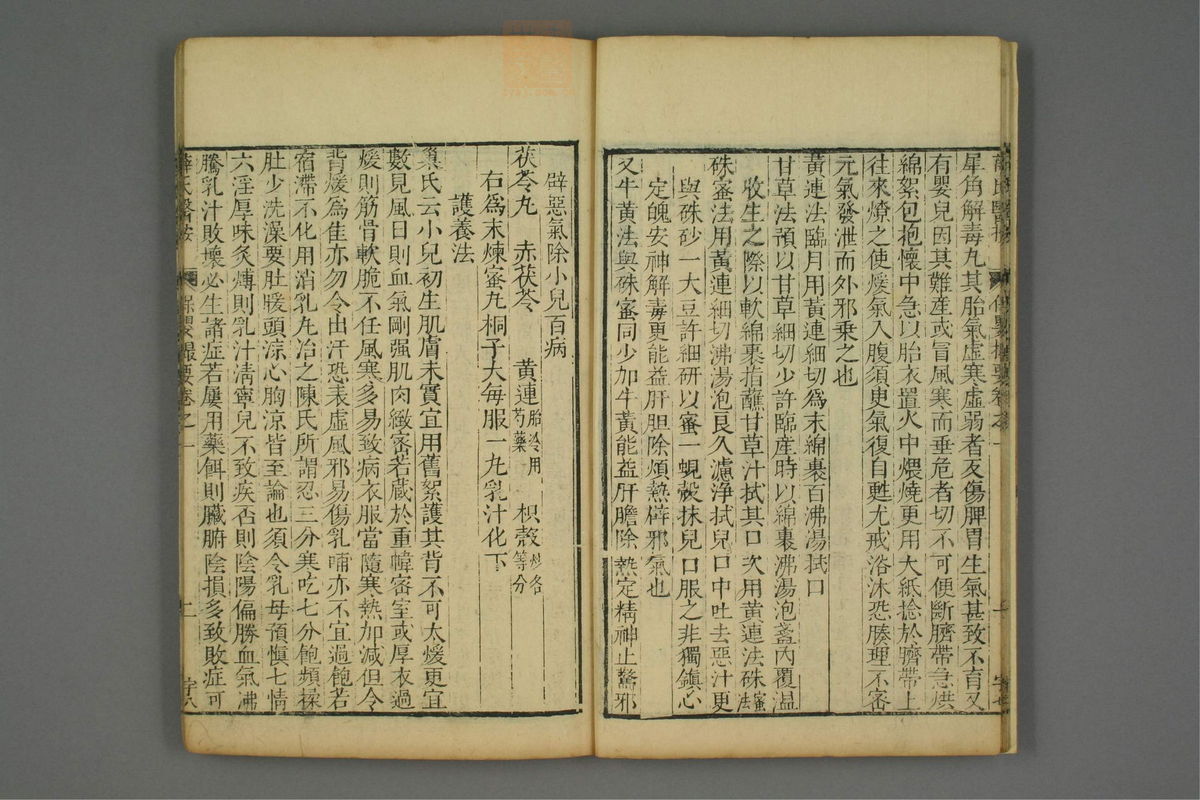 犀角解毒丸其胎氣虛寒虛弱者反傷脾胃生氣甚致不育又
有嬰兒因其難産或冒風寒而垂危者切不可便斷臍帶急烘
綿絮包抱懷中急以胎衣置火中煨燒更用大紙捻於臍帶上
往來燎之使煖氣入腹須臾氣復自甦尤戒浴沐恐腠理不密
元氣發泄而外邪乗之也
黃連法臨月用黃連細切爲末綿裹百沸湯拭口
甘草法預以甘草細切少許臨産時以綿裹沸湯泡盞內覆温
收生之際以軟綿裹指蘸甘草汁拭其口次用黃連法硃蜜法
硃蜜法用黃連細切沸湯泡良久濾浄拭兒口中吐去惡汁更
與硃砂一大豆許細研以蜜一蜆殼抹兒口服之非獨鎮心
定魄安神解毒更能益肝胆除煩熱辟邪氣也
又牛黃法與硃蜜同少加牛黃能益肝膽除熱定精神止驚邪
辟惡氣除小兒百病
茯苓丸　赤茯苓　黃連胎冷用芍藥　枳殼炒各等分
右爲末煉蜜丸桐子大每服一丸乳汁化下
護養法
巢氏云小兒初生肌膚未實宜用舊絮護其背不可太煖更宜
數見風日則血氣剛强肌肉緻密若藏於重幃密室或厚衣過
煖則筋骨軟脆不任風寒多易致病衣服當隨寒熱加減但令
背煖爲佳亦勿令出汗恐表虛風邪易傷乳哺亦不宜過飽若
宿滯不化用消乳丸治之陳氏所謂忍三分寒吃七分飽頻揉
肚少洗澡要肚暖頭涼心胸涼皆至論也須令乳母預愼七情
六淫厚味炙煿則乳汁清寧兒不致疾否則陰陽偏勝血氣沸
騰乳汁敗壞必生諸症若屢用藥餌則臟腑陰損多致敗症可
薛氏醫按　保嬰撮要卷之一　二　字八